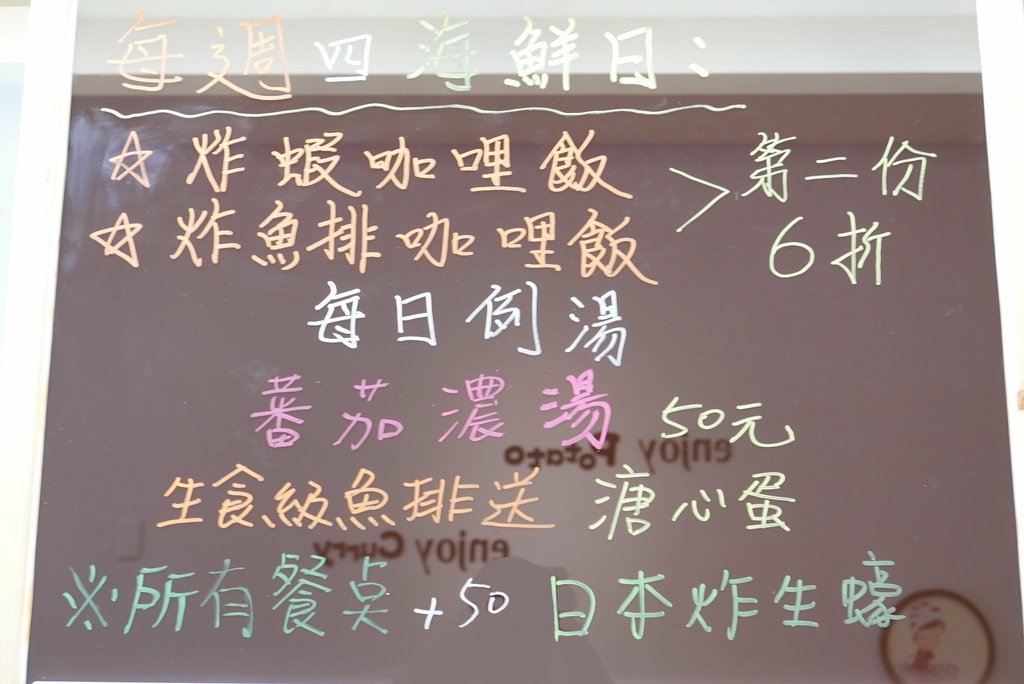 每週四海鮮日:
☆炸蝦咖哩飯
☆炸魚排咖哩飯
>第二份
6折
每日例湯
蕃茄濃湯 50元
enjoy Potato
生食級魚排送 溏心蛋
enjoy Curry
※所有餐点+50 日本炸生蠔